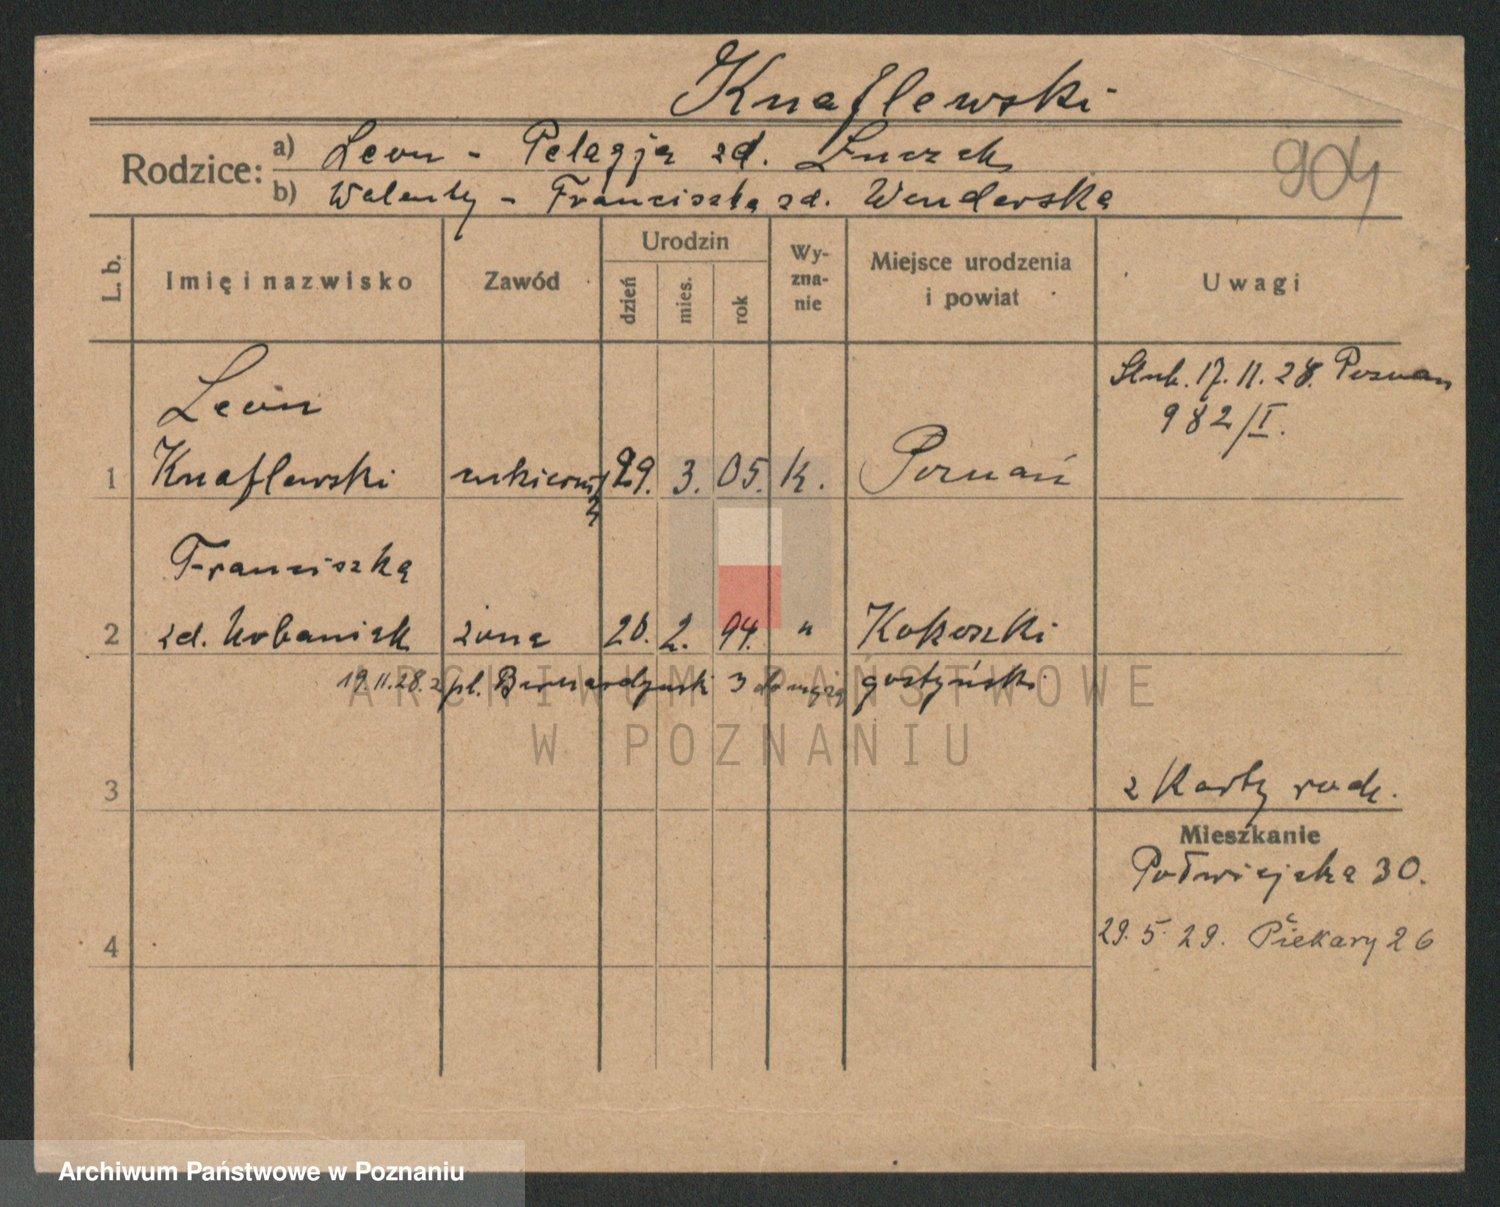 Knaflewski
904
Rodzice: a) Leon - Pelagja zd.
b) Walenty - Franciszka zd. Wenderska
L. b. Imię i nazwisko Zawód Urodzin dzień mies. rok Wy-zna-nie Miejsce urodzenia i powiat Uwagi
Ślub. 17. 11. 28. Poznań
982/I.
Leon
1 Knaflewski 29. 3. 05. K. Poznań
Franciszka
2 zd. Urbaniak żona 20. 2. 94. " Kokoszki
19. 11. 28. z pl. Bernardyński 3 do męża gostyński
3 z Karty rodz.
Mieszkanie
Półwiejska 30.
4 29. 5. 29. Piekary 26
ARCHIWUM PAŃSTWOWE
W POZNANIU
Archiwum Państwowe w Poznaniu